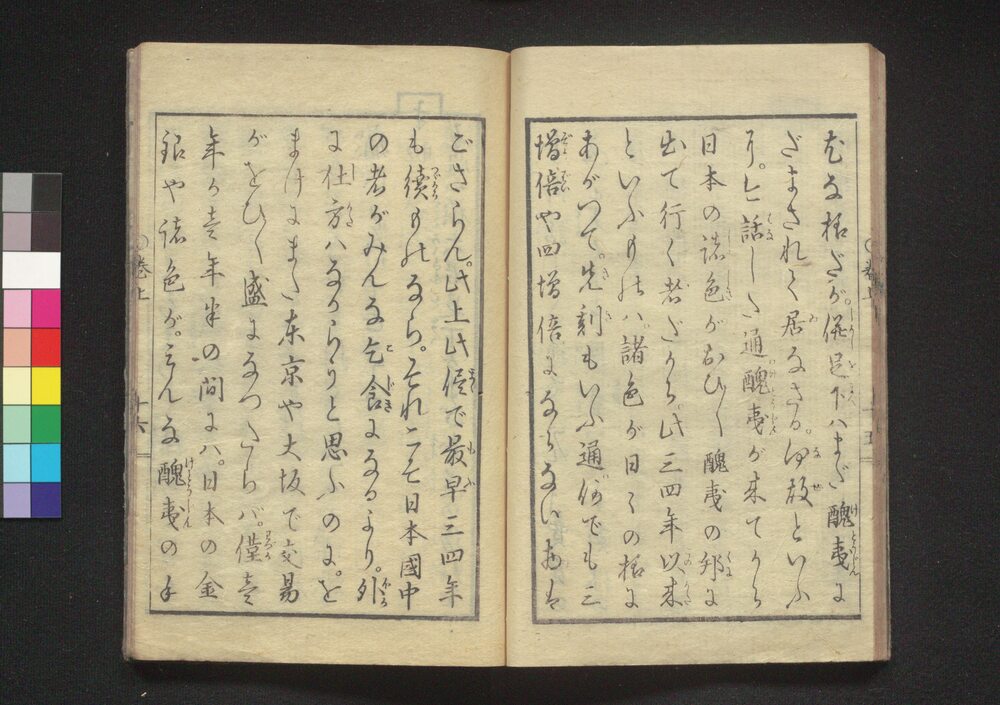 だな様だが。併足下ハまだ醜夷に
だまされて居なさる。何故といふ
に。今話した通醜夷が来てから
日本の諸色がおひ〳〵醜夷の邦に
出て行く者だから。此三四年以来
といふものハ。諸色が日々の様に
あがつて。先刻もいふ通何でも三
増倍や四増倍にならないものは
ござらん。此上此侭で最早三四年
も續ものなら。それこそ日本國中
の者がみんな乞食になるより。外
に仕方ハなからうと思ふのに。を
まけにまた東京や大坂で交易
がをひ〳〵盛になつたらバ。僅壱
年か壱年半の間にハ。日本の金
銀や諸色が。みんな醜夷の手
巻上
十六